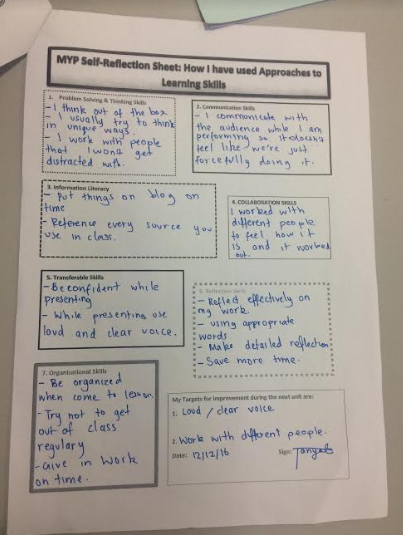 MYP Self-Reflection Sheet: How I have used Approaches to
Learning Skills
1. Problem Solving & Thinking Skills
- I think out of the box
- I usually try to think
in unique ways.
- I work with people
that I won't get
distracted with.
2. Communication Skills
- I communicate with
the audience while I am
performing so it doesn't
feel like we're just
forcefully doing it.
3. Information Literacy
- Put things on blog on
time
- Reference every source you
use in class.
4. COLLABORATION SKILLS
I worked with
different people
to feel how it
is and it worked
out.
5. Transferable Skills
- Be confident while
presenting
- While presenting use
loud and clear voice.
6. Reflection Skills
- Reflect effectively on
my work.
- using appropriate
words
- Make detailed reflection
- Save more time.
7. Organizational Skills
- Be organized
when come to lesson.
- Try not to get
out of class
regulary
- Give in work
on time.
My Targets for improvement during the next unit are:
1. Loud / clear voice
2. Work with different people.
Date: 12/12/16 Sign: